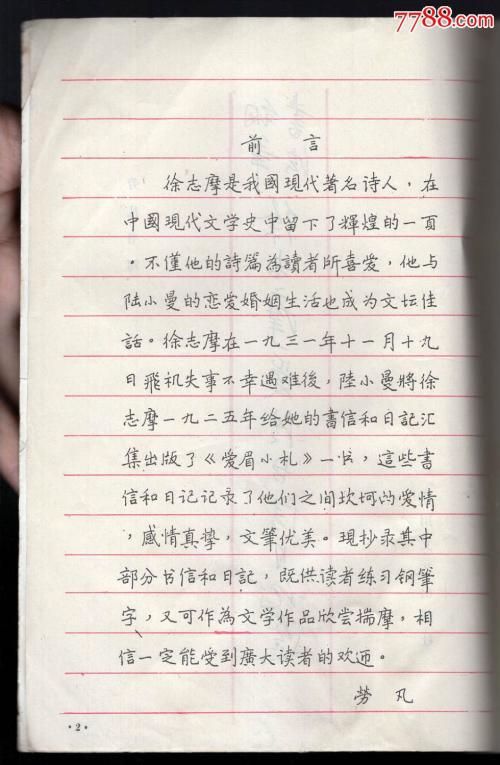 7788.com
前言
徐志摩是我國現代著名诗人，在
中國現代文学史中留下了輝煌的一頁
。不僅他的詩篇為讀者所喜爱，他与
陆小曼的恋爱婚姻生活也成为文坛佳
話。徐志摩在一九三一年十一月十九
日飛机失事不幸遇难後，陸小曼將徐
志摩一九二五年给她的書信和日記汇
集出版了《爱眉小札》一书，這些書
信和日记记录了他们之间坎坷的爱情
，感情真挚，文筆优美。現抄录其中
部分书信和日記，既供读者练习钢筆
字，又可作為文学作品欣尝揣摩，相
信一定能受到廣大读者的欢迎。
勞凡
·2·